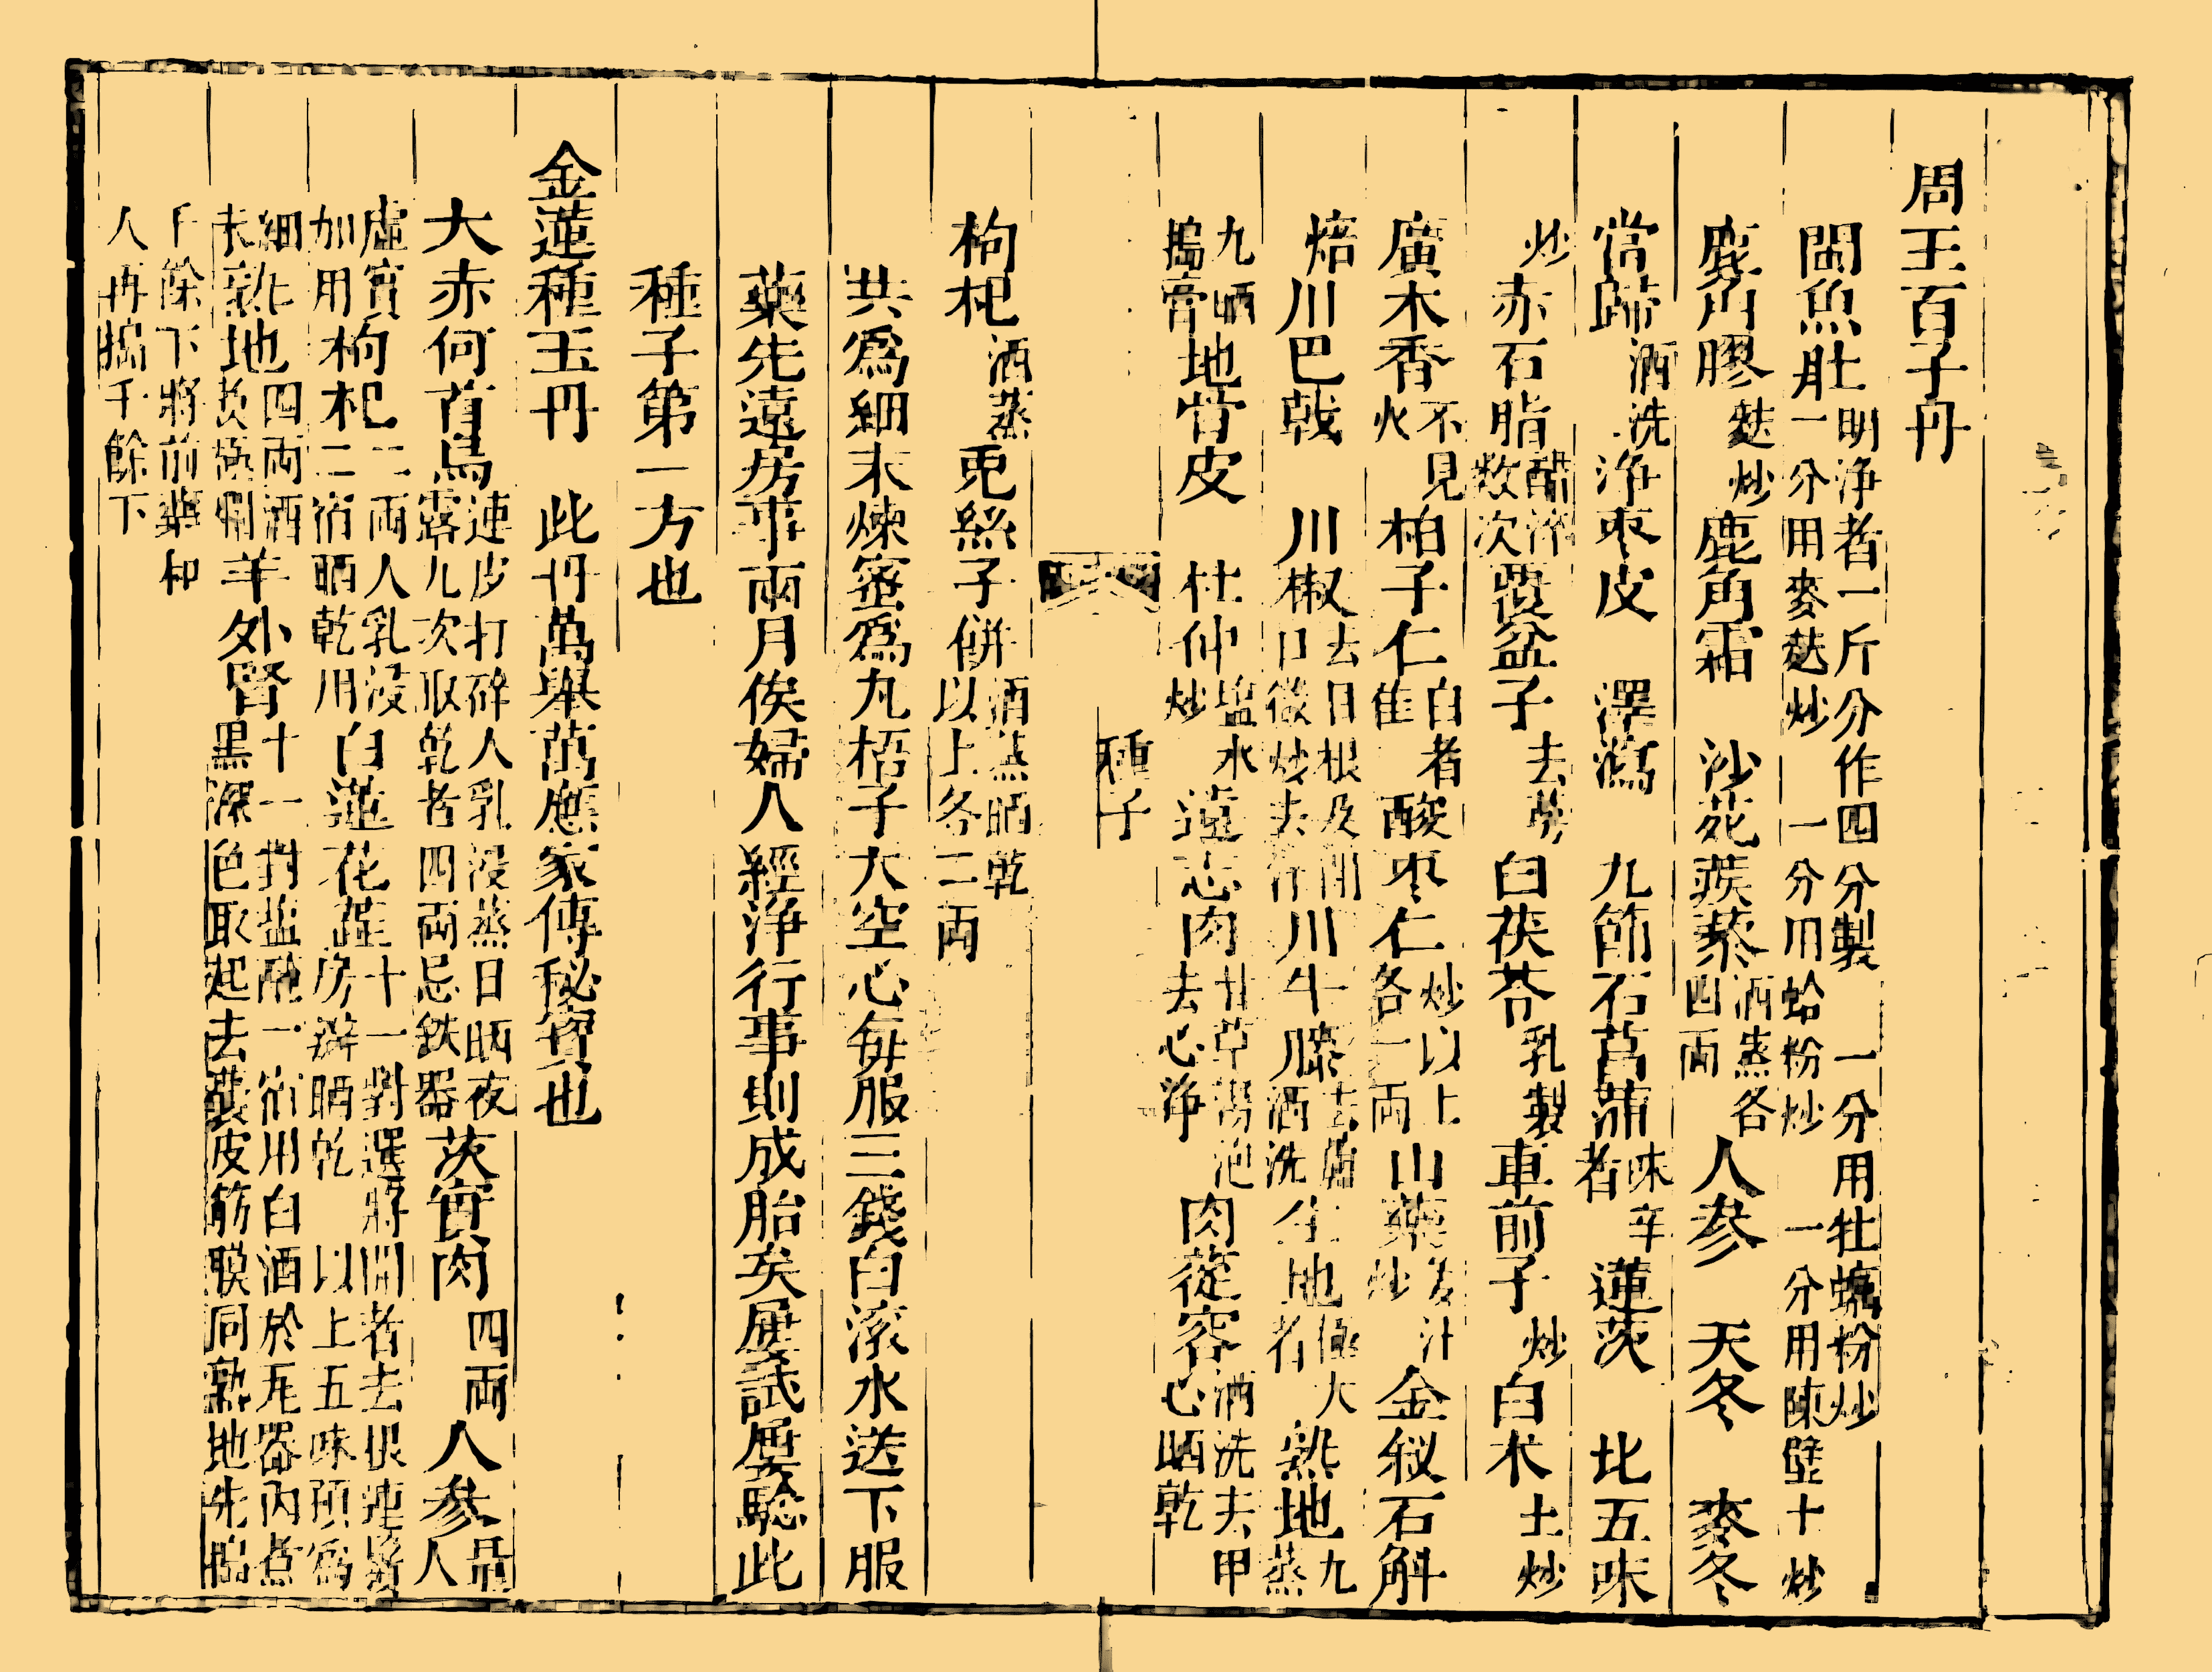 周王百子丹
閩魚肚明净者一斤分作四分製一分用牡蠣粉炒一分用麥麩炒一分用蛤粉炒一分用陳壁土炒
鹿角膠麩炒鹿角霜 沙苑蒺藜酒蒸各四兩人參 天冬 麥冬
當歸酒洗净枣皮 澤瀉 九節石菖蒲味辛者蓮茨 北五味
炒赤石脂醋淬數次覆盆子去蒂白茯苓乳製車前子炒白朮土炒
廣木香不見火柏子仁白者佳酸枣仁炒以上各一兩山藥姜汁炒金釵石斛
焙川巴戟 川椒去目根及閉口微炒去汗川牛膝去蘆酒洗生地極大者熟地九蒸
九晒搗膏地骨皮 杜仲塩水炒遠志肉甘草湯泡去心净肉蓯容酒洗去甲心晒乾
種子
枸杞酒蒸兎絲子餅酒蒸晒乾以上各二兩
共為細末煉蜜為丸梧子大空心每服三錢白滚水送下服
藥先遠房事兩月俟婦人經淨行事則成胎矣屢試屢驗此
種子第一方也
金蓮種玉丹 此丹萬舉萬應家傳秘寶也
大赤何首烏連皮打碎人乳浸蒸日晒夜露九次取乾者四兩忌鉄器茨實肉四兩人參晶人
虛實加用枸杞二兩人乳浸二宿晒乾用白蓮花蕋十一對選將開者去根連鬚房辦晒乾以上五味預為
細末熟地四兩酒煑極爛羊外腎十一對盐醃一宿用白酒於瓦器內煮黑深色取起去裹皮筋膜同熟地先搗
千餘下將前藥和入再搗千餘下